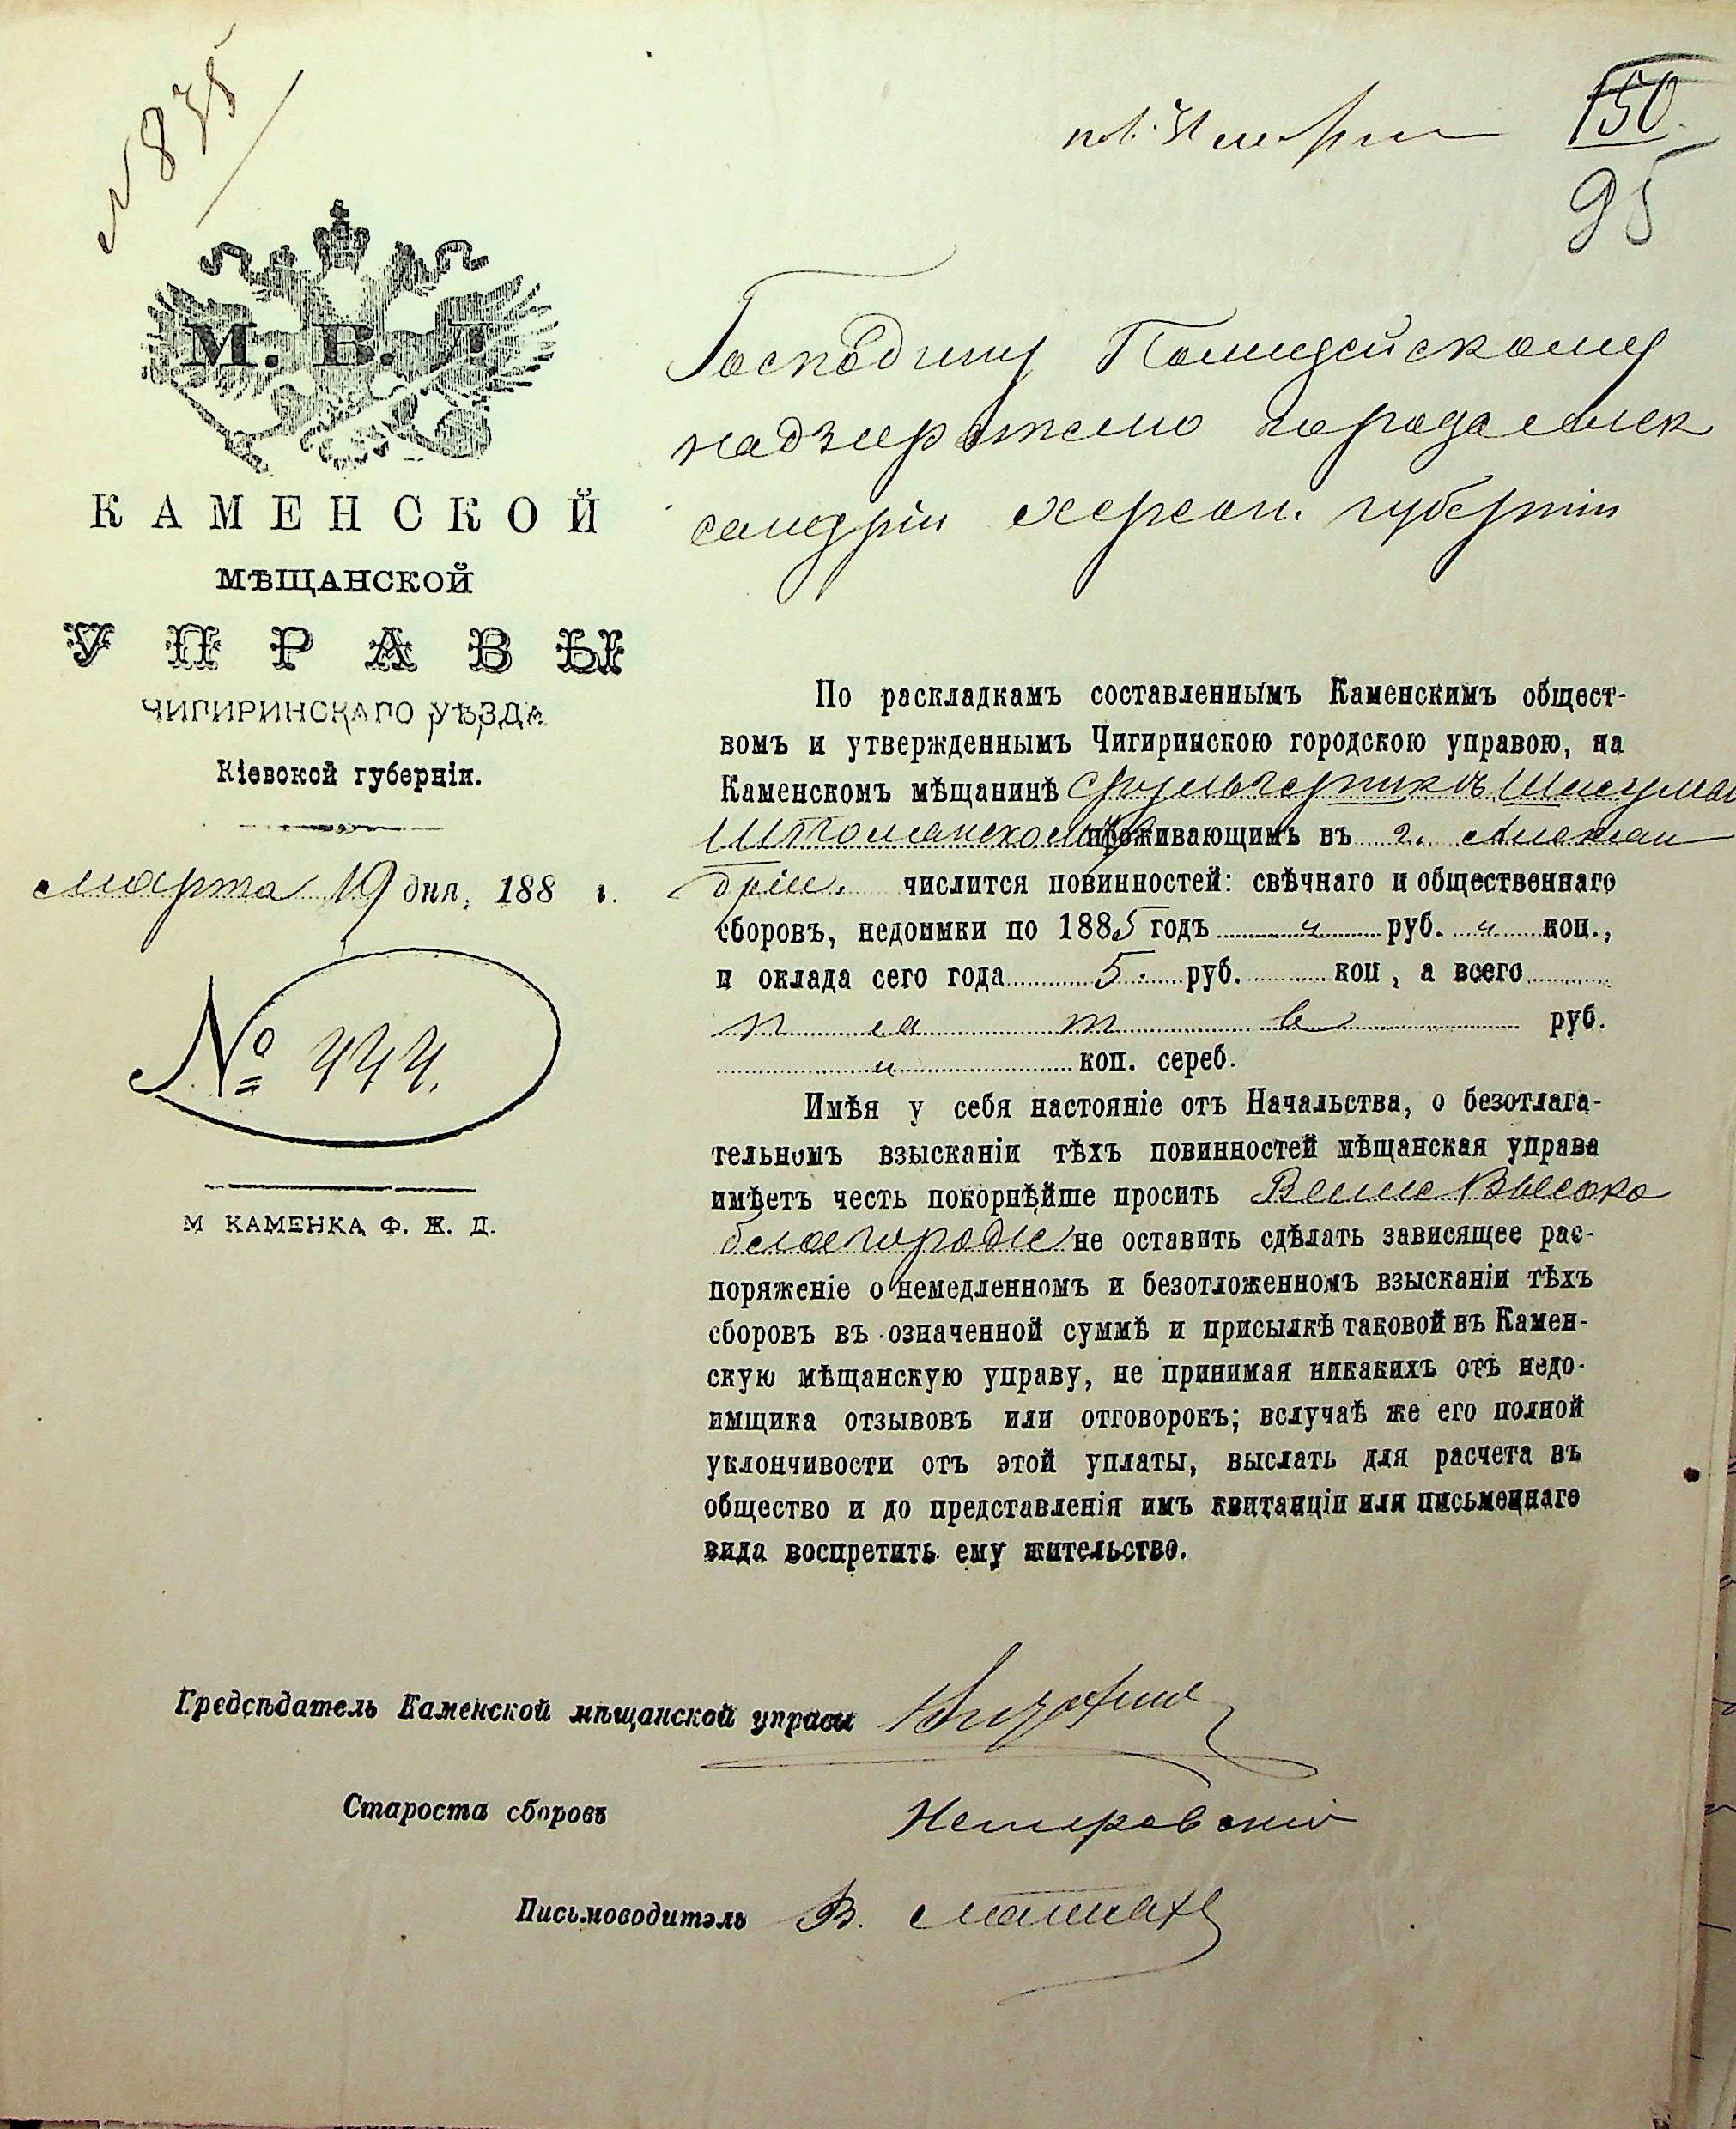 № 835
150
95
М. В. Д
КАМЕНСКОЙ
МѢЩАНСКОЙ
УПРАВЫ
ЧИГИРИНСКАГО УѢЗДА
Кіевской губерніи.
марта 19 дня, 188 г.
№ 444.
М КАМЕНКА Ф. Ж. Д.
Господину Полицейскому
надзирателю города Алек
сандріи Херсон. губерніи
По раскладкамъ составленнымъ Каменскимъ общест-
вомъ и утвержденнымъ Чигиринскою городскою управою, на
Каменскомъ мѣщанинѣ
проживающимъ въ г. Алексан
дріи. числится повинностей: свѣчнаго и общественнаго
сборовъ, недоимки по 1885 годъ ч руб. ч коп.,
и оклада сего года 5. руб. коп, а всего
пять руб.
ч коп. сереб.
Имѣя у себя настояніе отъ Начальства, о безотлага-
тельномъ взысканіи тѣхъ повинностей мѣщанская управа
имѣетъ честь покорнѣйше просить Ваше Высоко
благородіе не оставить сдѣлать зависящее рас-
поряженіе о немедленномъ и безотложенномъ взысканіи тѣхъ
сборовъ въ означенной суммѣ и присылкѣ таковой въ Камен-
скую мѣщанскую управу, не принимая никакихъ отъ недо-
имщика отзывовъ или отговорокъ; вслучаѣ же его полной
уклончивости отъ этой уплаты, выслать для расчета въ
общество и до представленія имъ квитанціи или письменнаго
вида воспретить ему жительство.
Предсѣдатель Каменской мѣщанской управы
Староста сборовъ Немеровскій
Письмоводитель В.